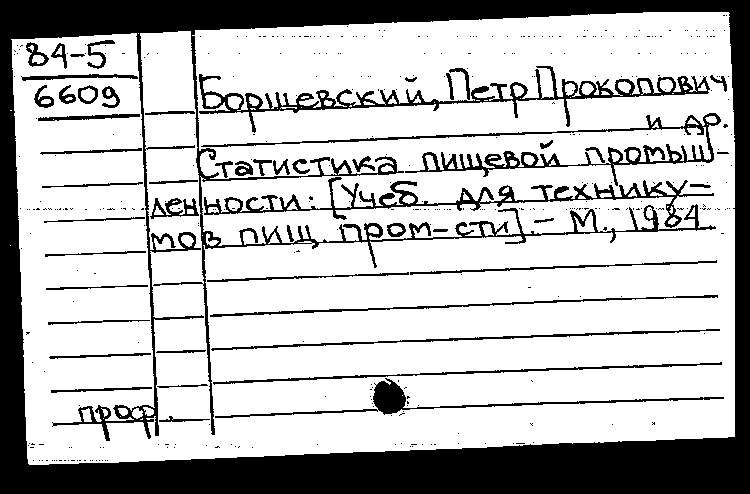 84-5
6609
Борщевский, Петр Прокопович
и др.
Статистика пищевой промыш-
ленности: [Учеб. для технику-
мов пищ. пром-сти]. - М., 1984.
проф.